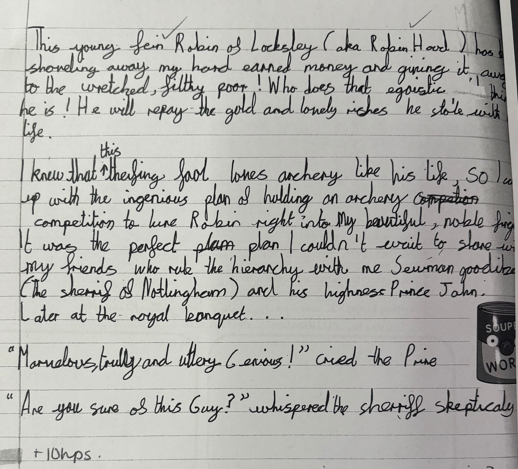 This young fein Robin of Locksley (aka Robin Hood) has
shoveling away my hard earned money and giving it, awa
to the wretched, filthy poor! Who does that egoistic thi
he is! He will repay the gold and lovely riches he stole with
life.
this
I knew that theifing fool loves archery like his life, So I co
up with the ingenious plan of holding an archery
competition to lure Robin right into my beautiful, noble fing
It was the perfect plan plan I couldn't wait to share wi
my friends who rule the hierarchy with me
(The sherrif of Notlingham) and his highness Prince John.
Later at the royal banquet...
"Marvalous, trully and uttery Genious!" cried the Prine
"Are you sure of this Guy?" whispered the sherriff skepticaly
+10hps.
SOUP
WOR